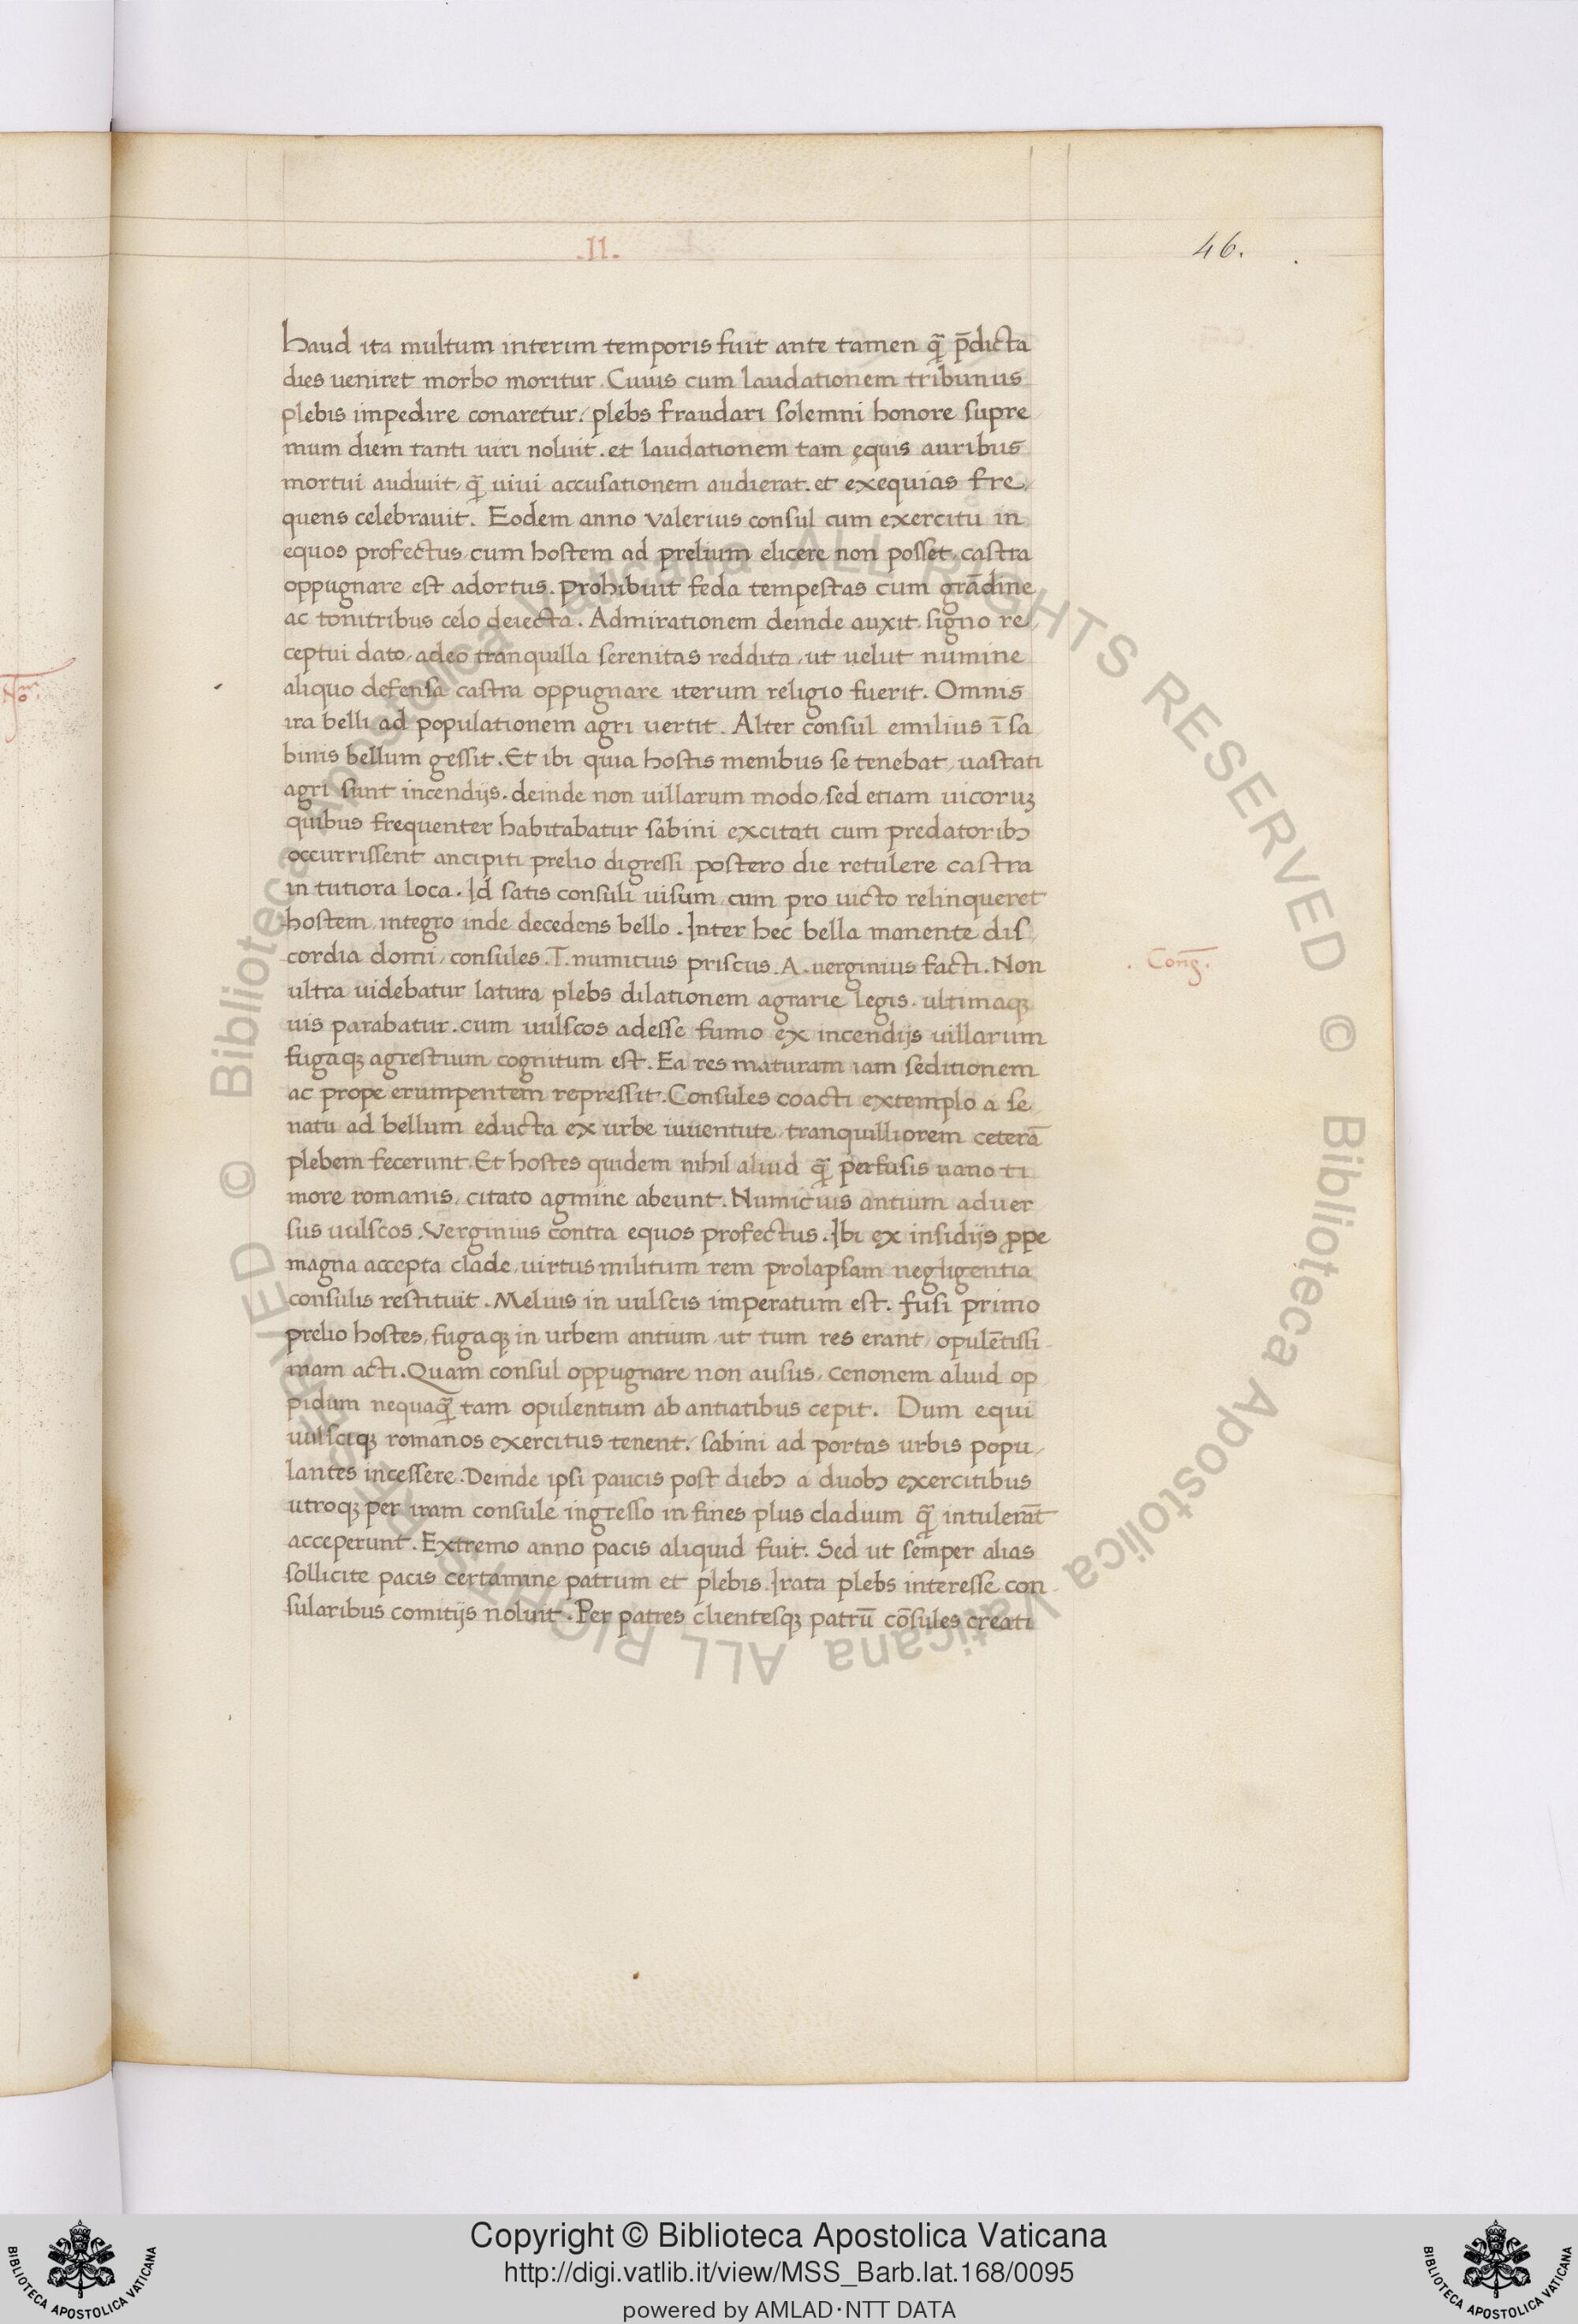 .II.
46.
haud ita multum interim temporis fuit ante tamen qͣ̄ p̄dicta
dies ueniret morbo moritur. Cuius cum laudationem tribunus
plebis impedire conaretur, plebs fraudari solemni honore supre
mum diem tanti uiri noluit. et laudationem tam ęquis auribus
mortui audiuit, qͣ̄ uiui accusationem audierat. et exequias fre,
quens celebrauit. Eodem anno valerius consul cum exercitu in
equos profectus, cum hostem ad prelium elicere non posset, castra
oppugnare est adortus. prohibuit feda tempestas cum grādine
ac tonitribus celo deiecta. Admirationem deinde auxit, signo re,
ceptui dato, adeo tranquilla serenitas reddita, ut uelut numine
aliquo defensa castra oppugnare iterum religio fuerit. Omnis
ira belli ad populationem agri uertit. Alter consul emilius ī sa
binis bellum gessit. Et ibi quia hostis menibus se tenebat, uastati
agri sunt incendijs. deinde non uillarum modo, sed etiam uicoruꝫ
quibus frequenter habitabatur sabini excitati cum predatoribꝫ
occurrissent ancipiti prelio digressi postero die retulere castra
in tutiora loca. Id satis consuli uisum, cum pro uicto relinqueret
hostem, integro inde decedens bello. Inter hec bella manente dis,
cordia domi, consules .T. numicius priscus .A. uerginius facti. Non
. Conȝ.
ultra uidebatur latura plebs dilationem agrarie legis. ultimaqꝫ
uis parabatur. cum uulscos adesse fumo ex incendijs uillarum
fugaqꝫ agrestium cognitum est. Ea res maturam iam seditionem
ac prope erumpentem repressit. Consules coacti extemplo a se,
natu ad bellum educta ex urbe iuuentute, tranquilliorem ceterā
plebem fecerunt. Et hostes quidem nihil aliud qͣ̄ perfusis uano ti
more romanis, citato agmine abeunt. Numicius antium aduer
sus uulscos. Verginius contra equos profectus. Ibi ex insidijs ꝓpe
magna accepta clade, uirtus militum rem prolapsam negligentia
consulis restituit. Melius in uulscis imperatum est. fusi primo
prelio hostes, fugaqꝫ in urbem antium, ut tum res erant, opulētissi
mam acti. Quam consul oppugnare non ausus, cenonem aliud op
pidum nequaqͣ̄ tam opulentum ab antiatibus cepit. Dum equi
uulsciqꝫ romanos exercitus tenent, sabini ad portas urbis popu,
lantes incessere. Deinde ipsi paucis post diebꝫ a duobꝫ exercitibus
utroqꝫ per iram consule ingresso in fines plus cladium qͣ̄ intulerāt
acceperunt. Extremo anno pacis aliquid fuit. Sed ut semper alias
sollicite pacis certamine patrum et plebis. Irata plebs interesse con
sularibus comitijs noluit. Per patres clientesqꝫ patrū cōsules creati
Copyright © Biblioteca Apostolica Vaticana
http://digi.vatlib.it/view/MSS_Barb.lat.168/0095
powered by AMLAD·NTT DATA